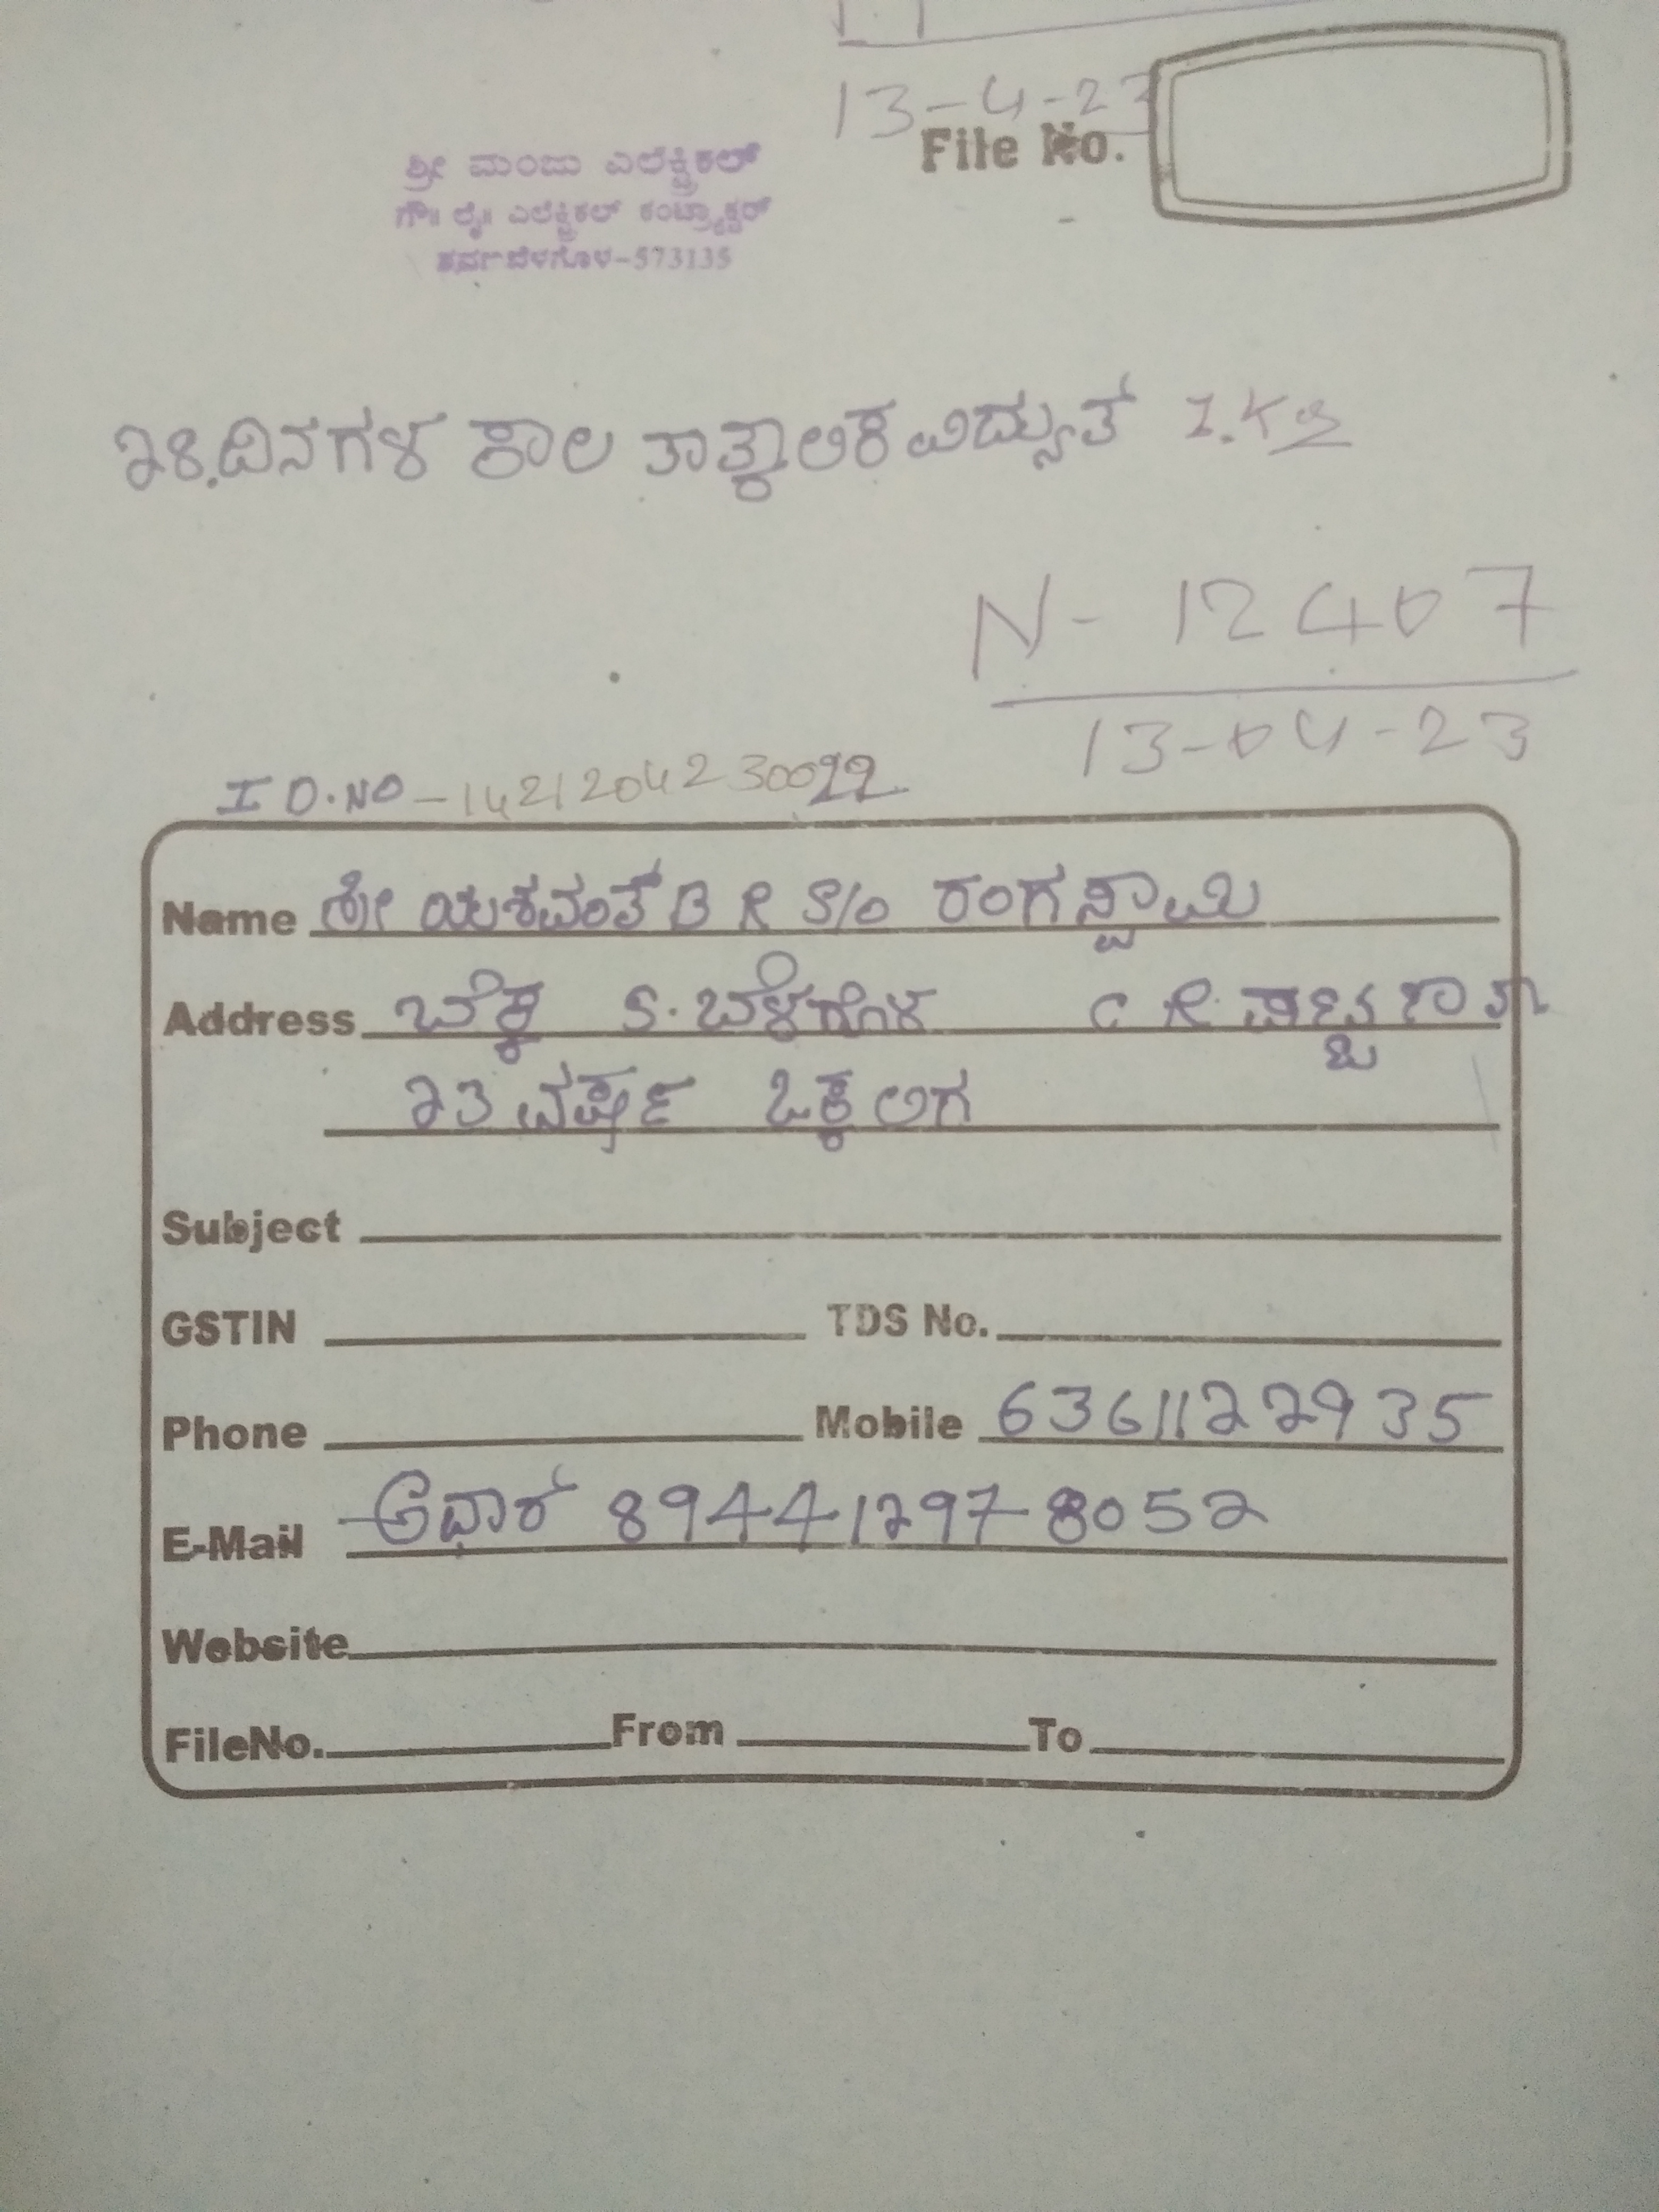 13-4-23
File No.
ಶ್ರೀ ಮಂಜು ಎಲೆಕ್ಟ್ರಿಕಲ್
ಗೌ॥ ಲೈ॥ ಎಲೆಕ್ಟ್ರಿಕಲ್ ಕಂಟ್ರಾಕ್ಟರ್
573135
28.ದಿನಗಳ ಕಾಲ ತಾತ್ಕಾಲಿಕ ವಿದ್ಯುತ್
N- 12407
13-04-23
I D.NO - 1421204230022
Name ಶ್ರೀ ಯಶವಂತ್ B R S/O ರಂಗಸ್ವಾಮಿ
Address ಬೆಕ್ಕ S.ಬೆಳಗೊಳ C R ಪಟ್ಟಣ ತಾ
23 ವರ್ಷ ಒಕ್ಕಲಿಗ
Subject
GSTIN TDS No.
Phone Mobile 6361122935
E-Mail ಆಧಾರ್ 894412978052
Website
FileNo. From To